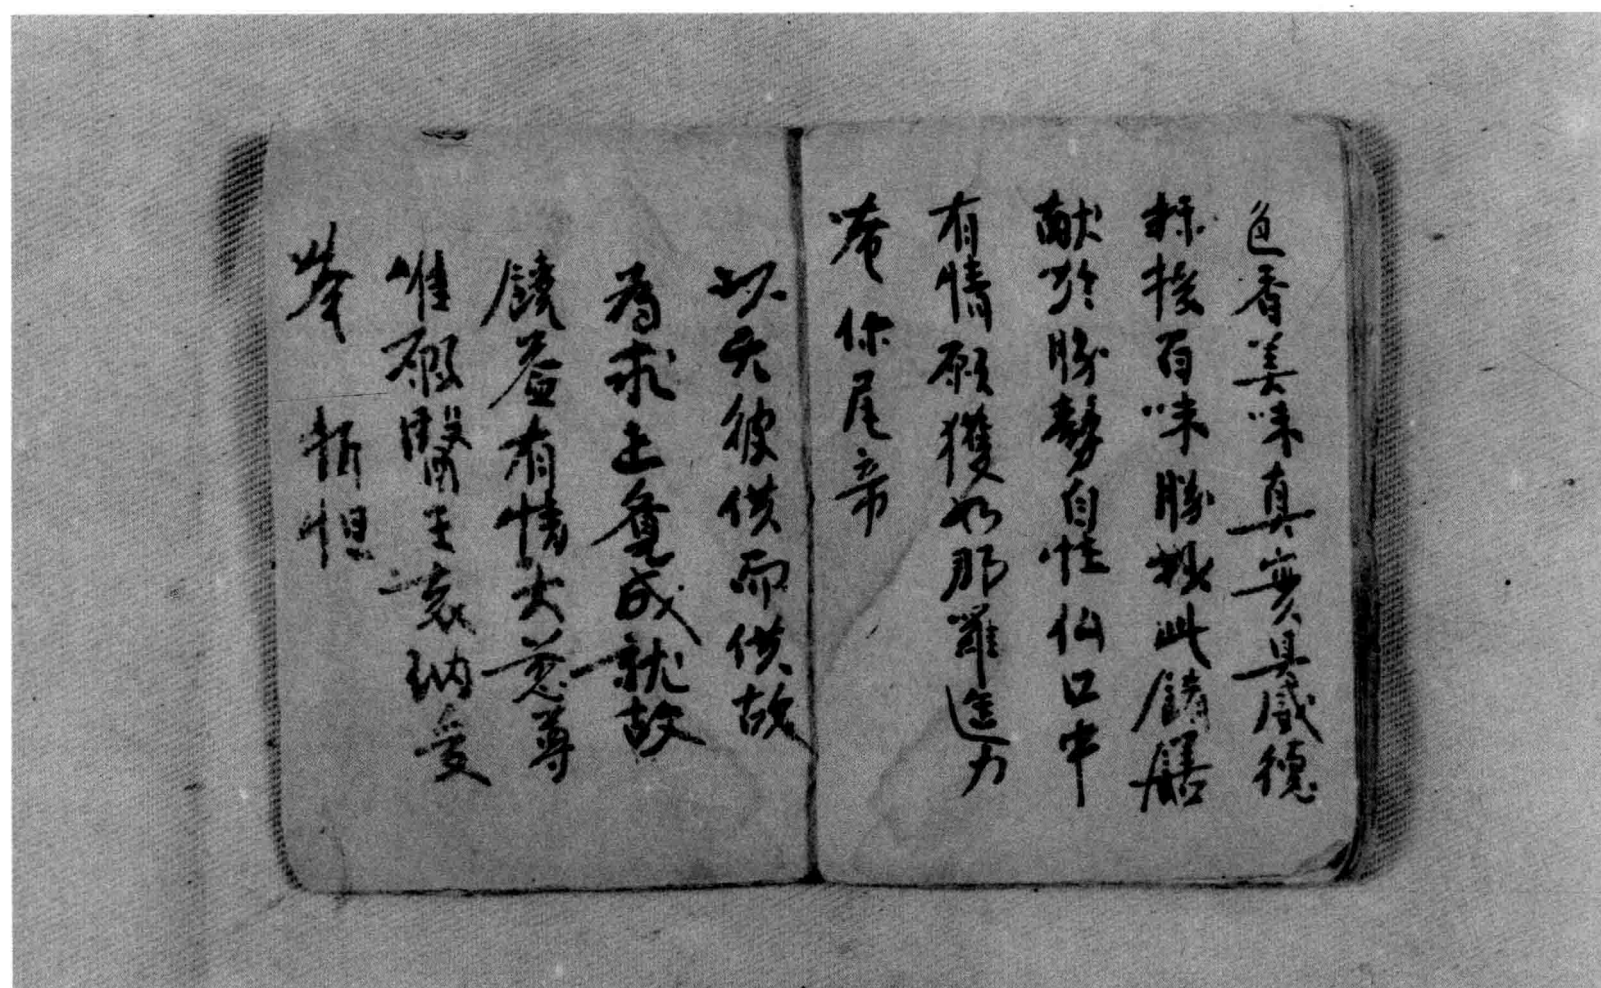 色香美味真實具威德
揉接百味勝妙此饍膳
献於勝勢自性仙口中
有情願獲如那羅延力
唵你尾帝
以无彼供而供故
為求上覺成就故
饒益有情大慈尊
唯願醫王哀納受
奉 怛